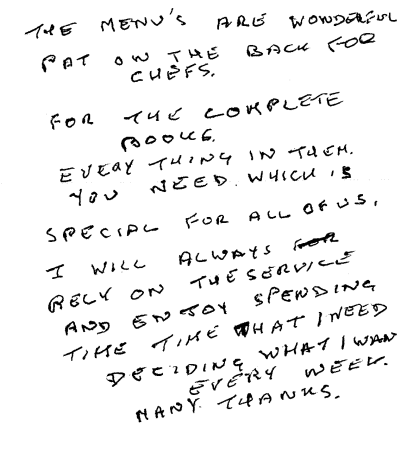 THE MENU'S ARE WONDERFUL
PAT ON THE BACK FOR
CHEFS.
FOR THE COMPLETE
BOOKS.
EVERY THING IN THEM.
YOU NEED. WHICH IS
SPECIAL FOR ALL OF US.
I WILL ALWAYS
RELY ON THE SERVICE
AND ENJOY SPENDING
TIME TIME THAT I NEED
DECIDING WHAT I WAN
EVERY WEEK.
MANY THANKS.